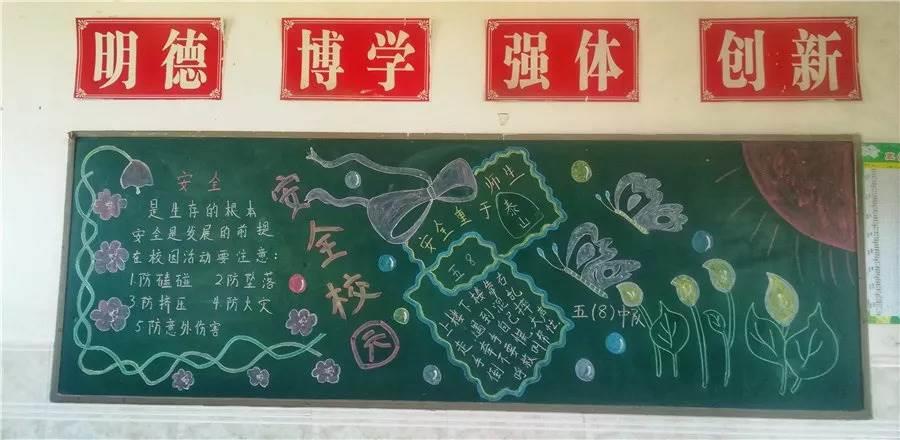 明德
博学
强体
创新
安全
是生存的根本
安全是发展的前提
在校园活动要注意：
1防磕碰 2防坠落
3防挤压 4防火灾
5防意外伤害
安全校园
师生
安全重于泰山
五8
上楼下楼靠右
走，遇到混乱
五（8）中队